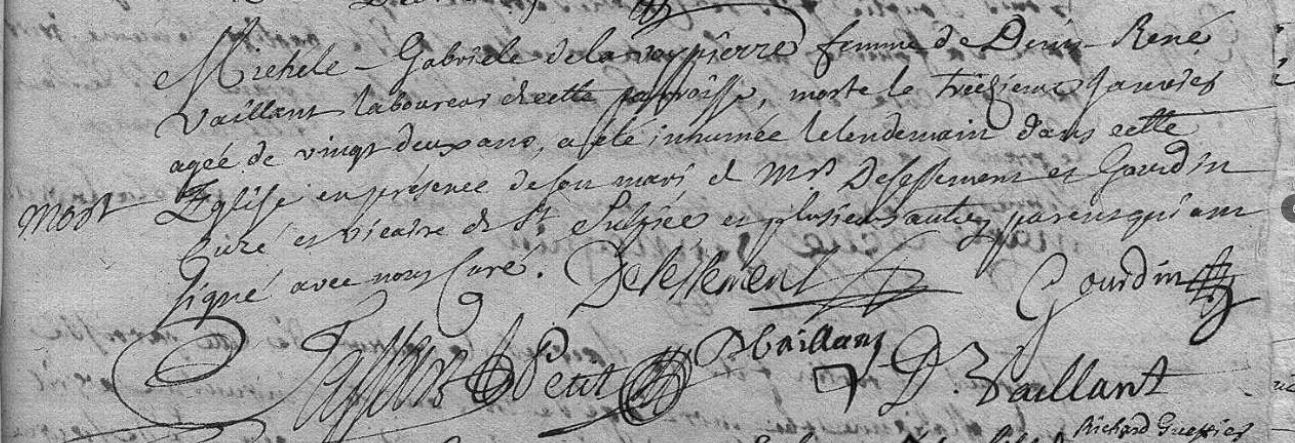 Michele - Gabriele de la femme de Denis - René
Vaillant laboureur de cette parroisse, morte le treizieme janvier
ageé de vingt deux ans, a eté inhumée le lendemain dans cette
mort Eglise en présence de son mari et Mrs Desessement et Gourdin
Curé et vicaire de St Sulpice et plusieurs autres parens qui ont
signé avec nous Curé. Desessement Gourdin
Petit Vaillant D. Vaillant
Richard